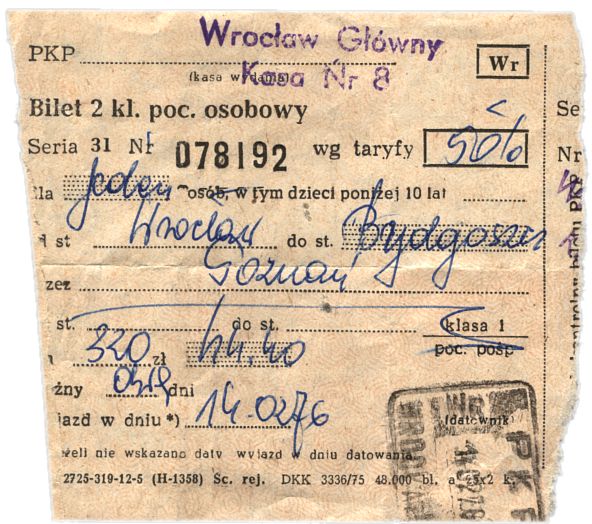 Wrocław Główny
PKP (kasa wydania) Kasa Nr 8 Wr
Bilet 2 kl. poc. osobowy Se
Seria 31 Nr 078192 wg taryfy 50% Nr
dla jeden osób, w tym dzieci poniżej 10 lat
d st Wrocław do st. Bydgoszcz
zez Poznań
st. do st. klasa 1
poc. pośp
320 zł 44.40
żny dni
jazd w dniu *) 14.0276 (datownik)
żeli nie wskazano daty wyjazd w dniu datowania.
2725-319-12-5 (H-1358) Sc. rej. DKK 3336/75 48.000 bl. a 25x2 k.
PKP
WROCŁAW